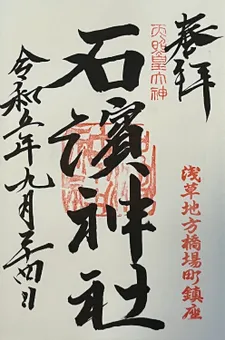 奉拝
天照皇大神
石濱神社
浅草地方橋場町鎮座
令和五年九月二四日